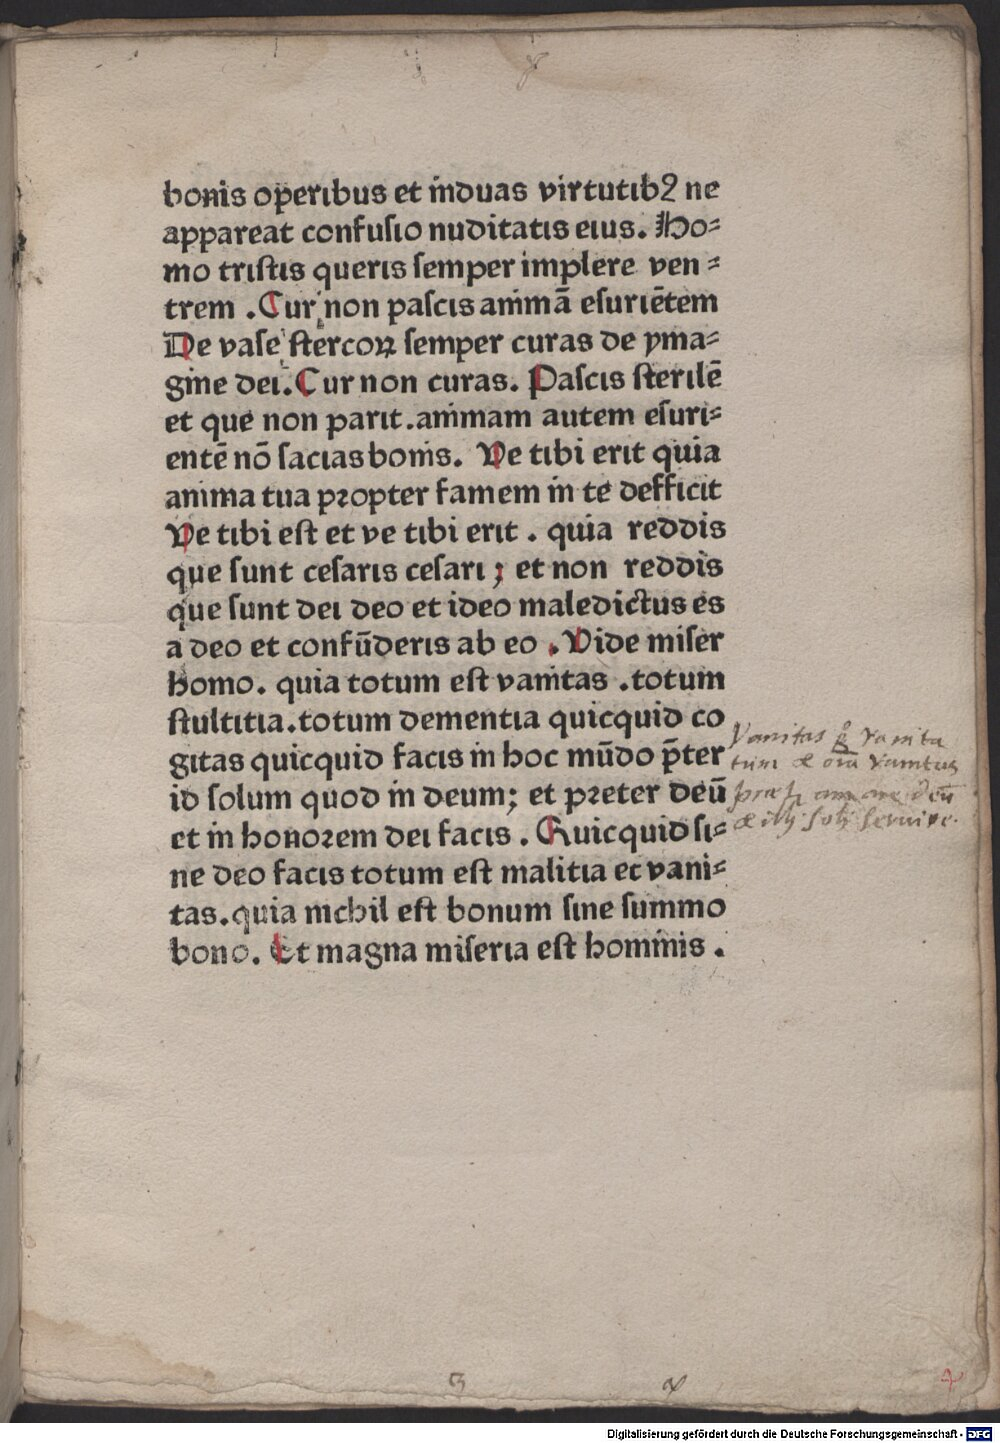 bonis operibus et induas virtutibꝫ ne
appareat confusio nuditatis eius. Ho⸗
mo tristis queris semper implere ven⸗
trem . Cur non pascis animā esuriētem
De vase stercoꝝ semper curas de yma⸗
gine dei. Cur non curas. Pascis sterilē
et que non parit. animam autem esuri⸗
entē nō sacias bonis. Ve tibi erit quia
anima tua propter famem in te defficit
Ve tibi est et ve tibi erit . quia reddis
que sunt cesaris cesari ; et non reddis
que sunt dei deo et ideo maledictus es
a deo et confūderis ab eo . Vide miser
homo. quia totum est vanitas . totum
stultitia. totum dementia quicquid co
gitas quicquid facis in hoc mūdo p̄ter
id solum quod in deum; et preter deū
et in honorem dei facis . Quicquid si⸗
ne deo facis totum est malitia et vani⸗
tas. quia nichil est bonum sine summo
bono. Et magna miseria est hominis .
Vanitas vanita
tum & oīa vanitas
amare deū
& illi soli seruire.
Digitalisierung gefördert durch die Deutsche Forschungsgemeinschaft - DFG